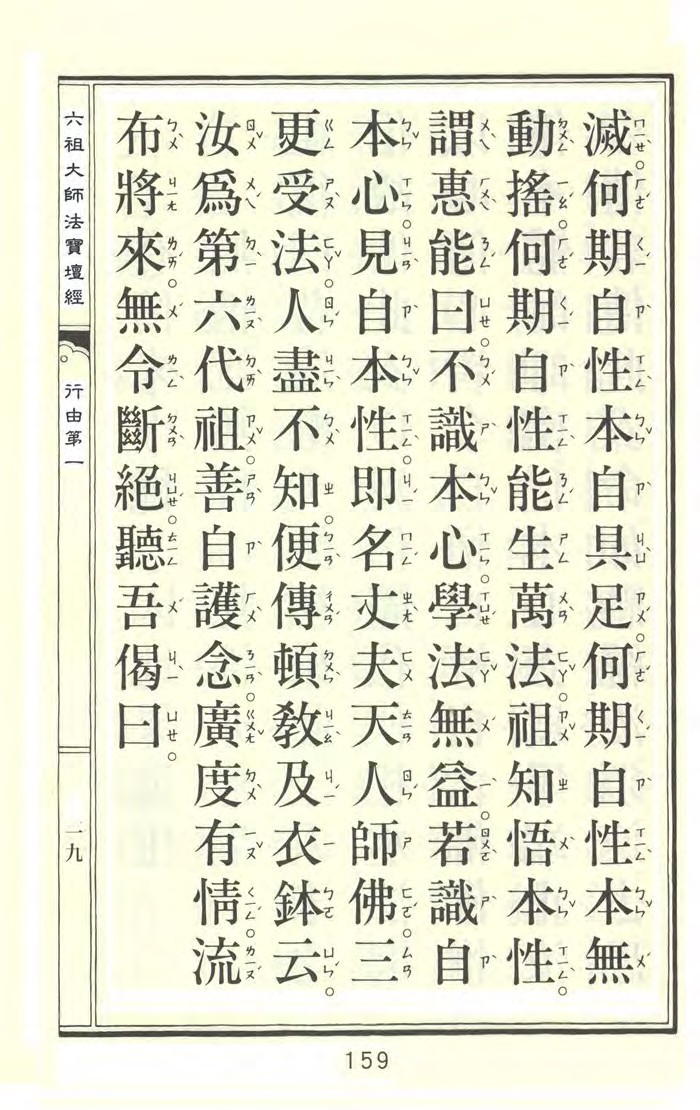 滅。何期自性本自具足。何期自性本無
動搖。何期自性能生萬法。祖知悟本性。
謂惠能曰。不識本心。學法無益。若識自
本心。見自本性。即名丈夫天人師佛。三
更受法。人盡不知。便傳頓教及衣鉢云。
汝為第六代祖。善自護念。廣度有情。流
布將來。無令斷絕。聽吾偈曰。
六祖大師法寶壇經
行由第一
二九
159